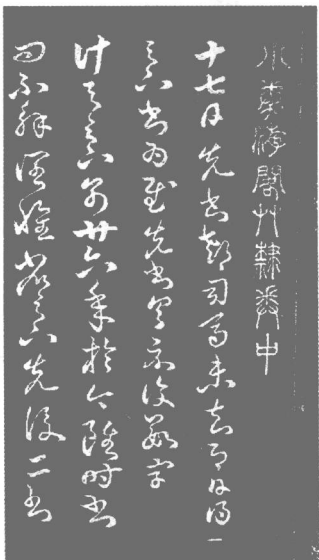 閣艸隸卷中
十七日先書郗司馬未去即日得
足下書為慰先書以具示復數字
計與足下別廿六年於今雖時書
問不解闊懷省足下先後二書